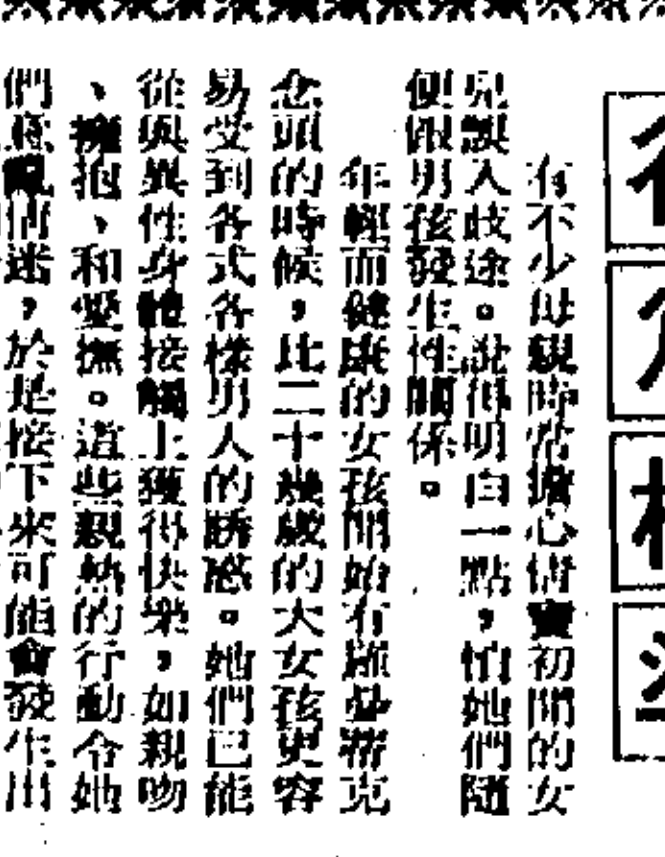 有不少母親時常擔心情竇初開的女
兒誤入歧途。說得明白一點,怕她們隨
便跟男孩發生性關係。
年輕而健康的女孩開始有羅曼蒂克
念頭的時候,比二十幾歲的大女孩更容
易受到各式各樣男人的誘惑。她們已能
從與異性身體接觸上獲得快樂,如親吻
、擁抱、和愛撫。這些親熱的行動令她
們意亂情迷,於是接下來可能會發生出